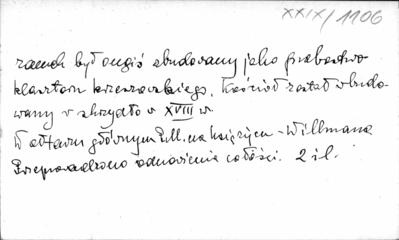 XXIX/1106
zamek był ongiś zbudowany jako probostwo
klasztoru krzeszowskiego. Kościół został wbudo-
wany w skrzydło w XVIII w.
W ołtarzu głównym M. na księżycu - Willmana
Przeprowadzono odnowienie całości. 2 il.